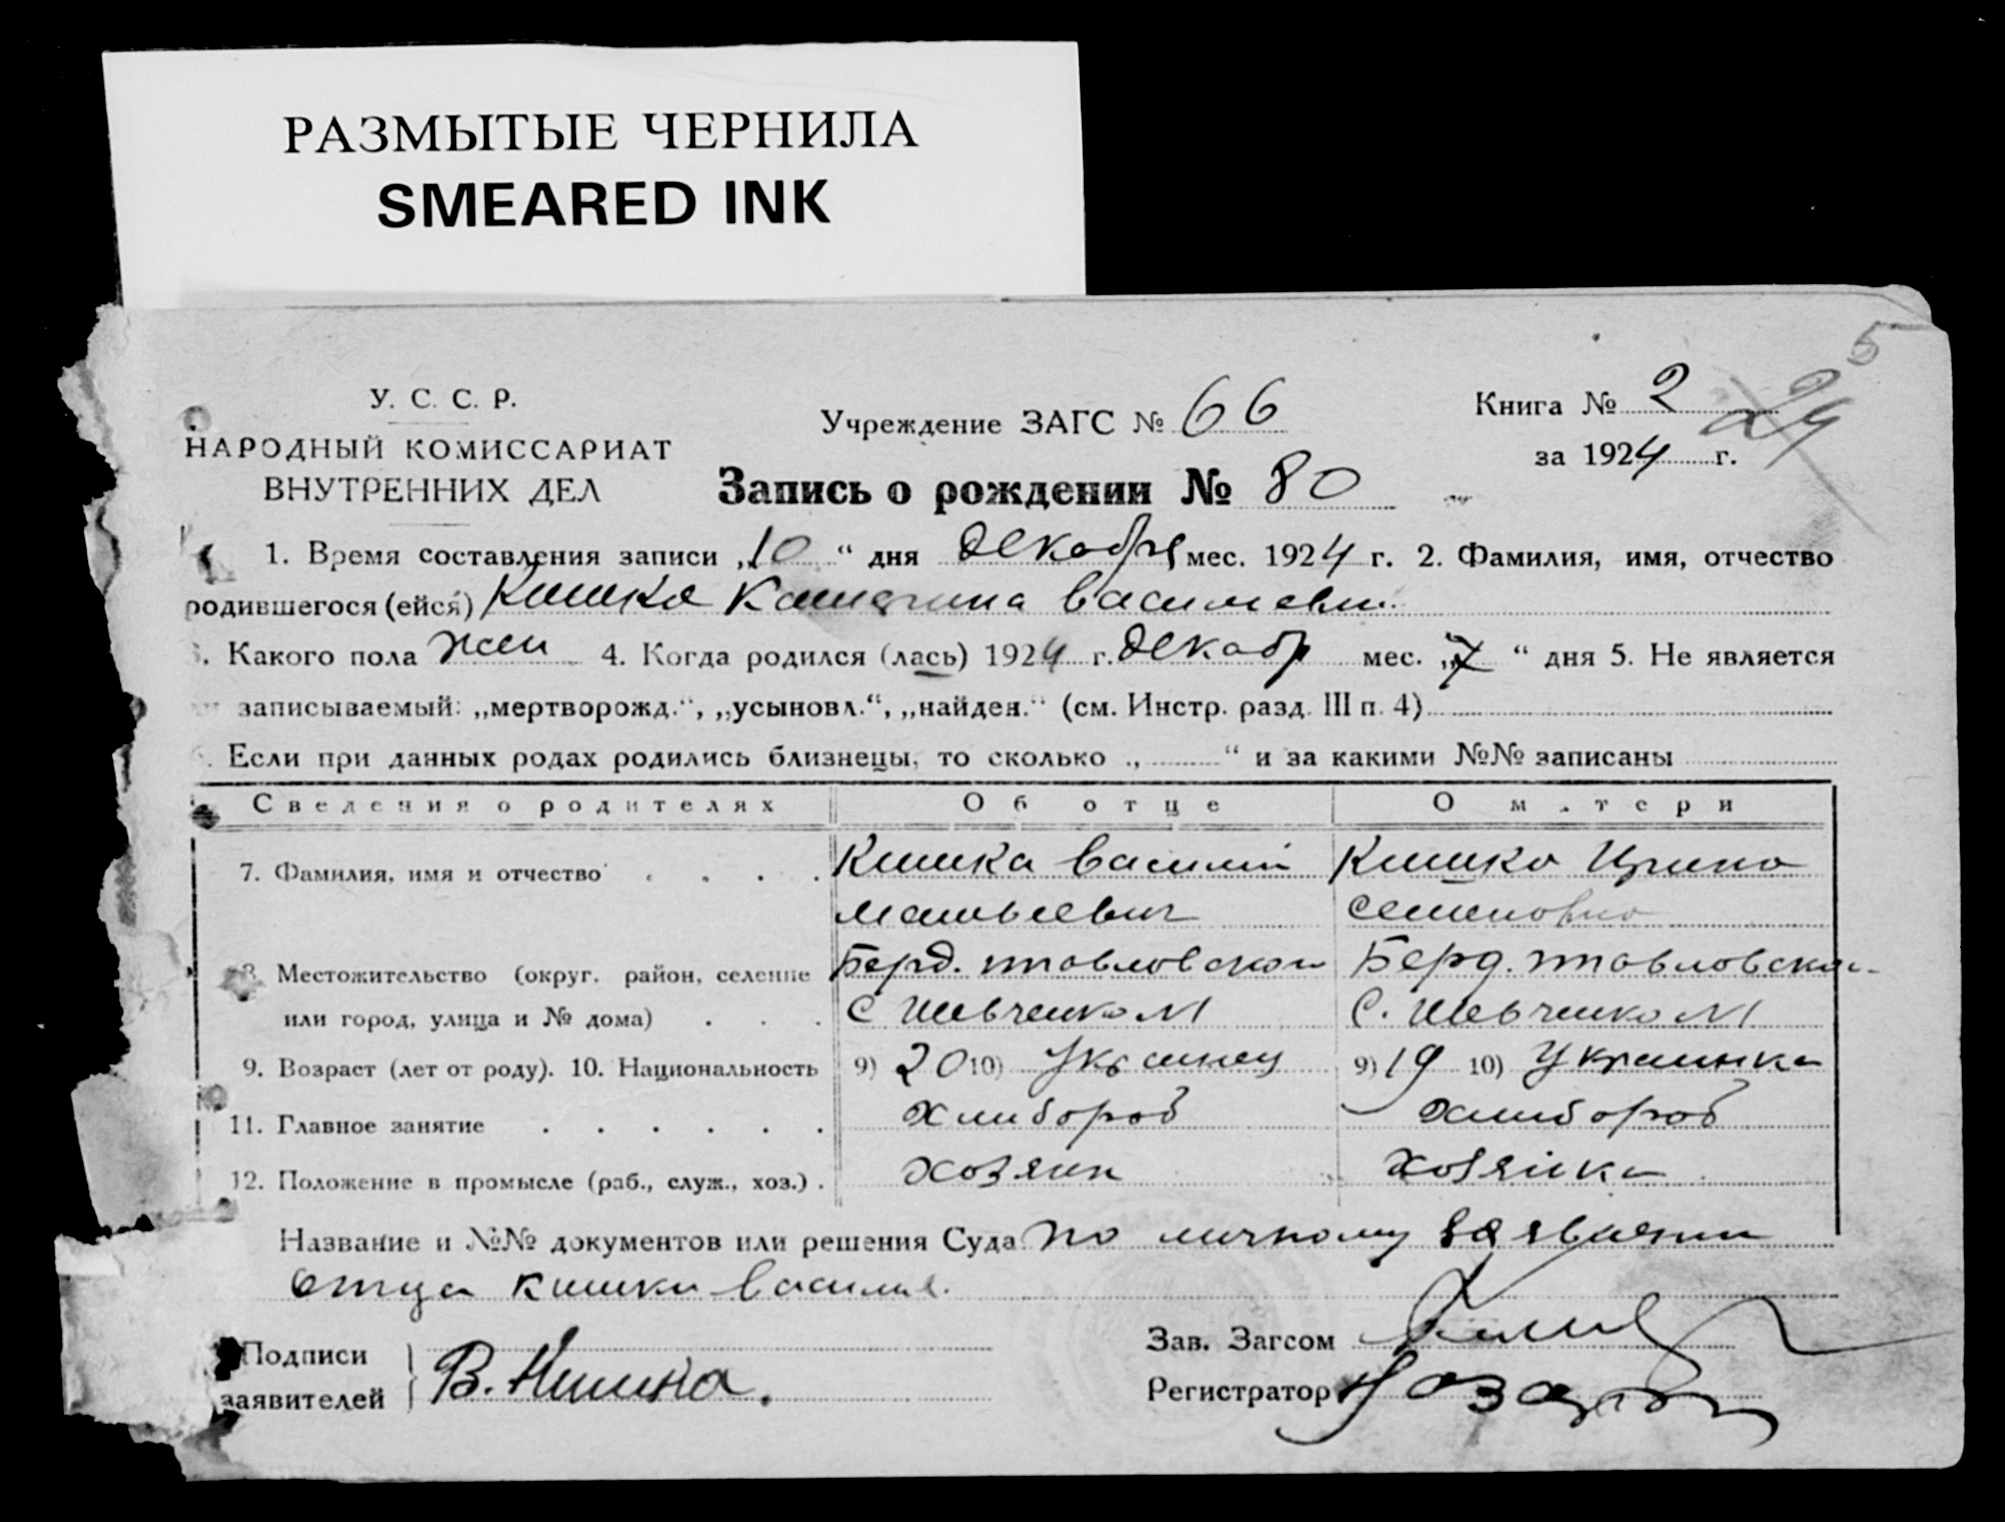 РАЗМЫТЫЕ ЧЕРНИЛА
SMEARED INK
5
У. С. С. Р.
НАРОДНЫЙ КОМИССАРИАТ
ВНУТРЕННИХ ДЕЛ
Учреждение ЗАГС № 66
Книга № 2
24
за 1924 г.
Запись о рождении № 80
1. Время составления записи „10“ дня декабря мес. 1924 г. 2. Фамилия, имя, отчество
родившегося (ейся) Кишка Катерина Васильевн.
3. Какого пола жен 4. Когда родился (лась) 1924 г. декабр мес. „7“ дня 5. Не является
записываемый: „мертворожд.“, „усыновл.“, „найден.“ (см. Инстр. разд. III п. 4)
6. Если при данных родах родились близнецы, то сколько „ “ и за какими №№ записаны
Сведения о родителях Об отце О матери
7. Фамилия, имя и отчество Кишка Василий Кишка Ирина
Матвеевич Семеновна
8. Местожительство (округ, район, селение Берд. Павловской Берд. Павловской
или город, улица и № дома) С Шевченко М С. Шевченко М
9. Возраст (лет от роду). 10. Национальность 9) 20 10) Украинец 9) 19 10) Украинка
11. Главное занятие Хлибороб Хлибороб
12. Положение в промысле (раб., служ., хоз.) Хозяин Хозяйка
Название и №№ документов или решения Суда по личному заявлению
отца Кишки Василия.
Подписи
заявителей В. Кишка.
Зав. Загсом
Регистратор